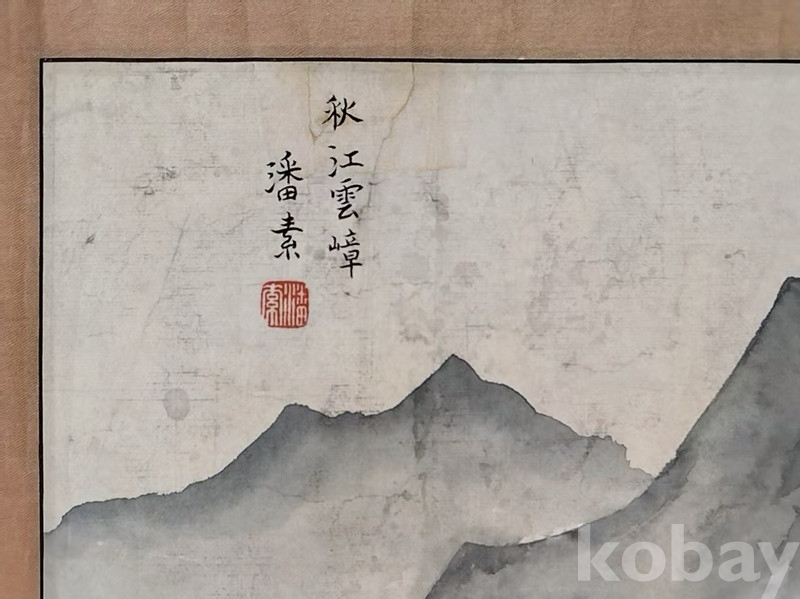 秋江雲嶂
潘素
潘素
kobay